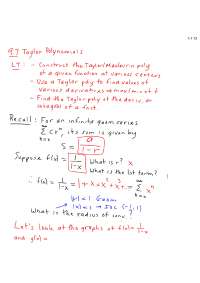 9.7 Taylor Polynomials
LT: - Construct the Taylor/Maclaurin poly
of a given function at various centers
- Use a Taylor poly to find values of
various derivatives
- Find the Taylor poly of the deriv. or
integral of a fact.
Recall: For an infinite geom series
∞
Σ c rⁿ, its sum is given by
n=0
S = a / 1-r
Suppose f(x) = 1/1-x What is r? x
What is the 1st term? 1
∴ f(x) = 1/1-x = 1+x+x²+x³+... = Σ xⁿ
|r|<1 Geom
|x|<1 → IOC (-1,1)
What is the radius of conv.?
Let's look at the graphs of f(x) = 1/1-x
and g(x) =